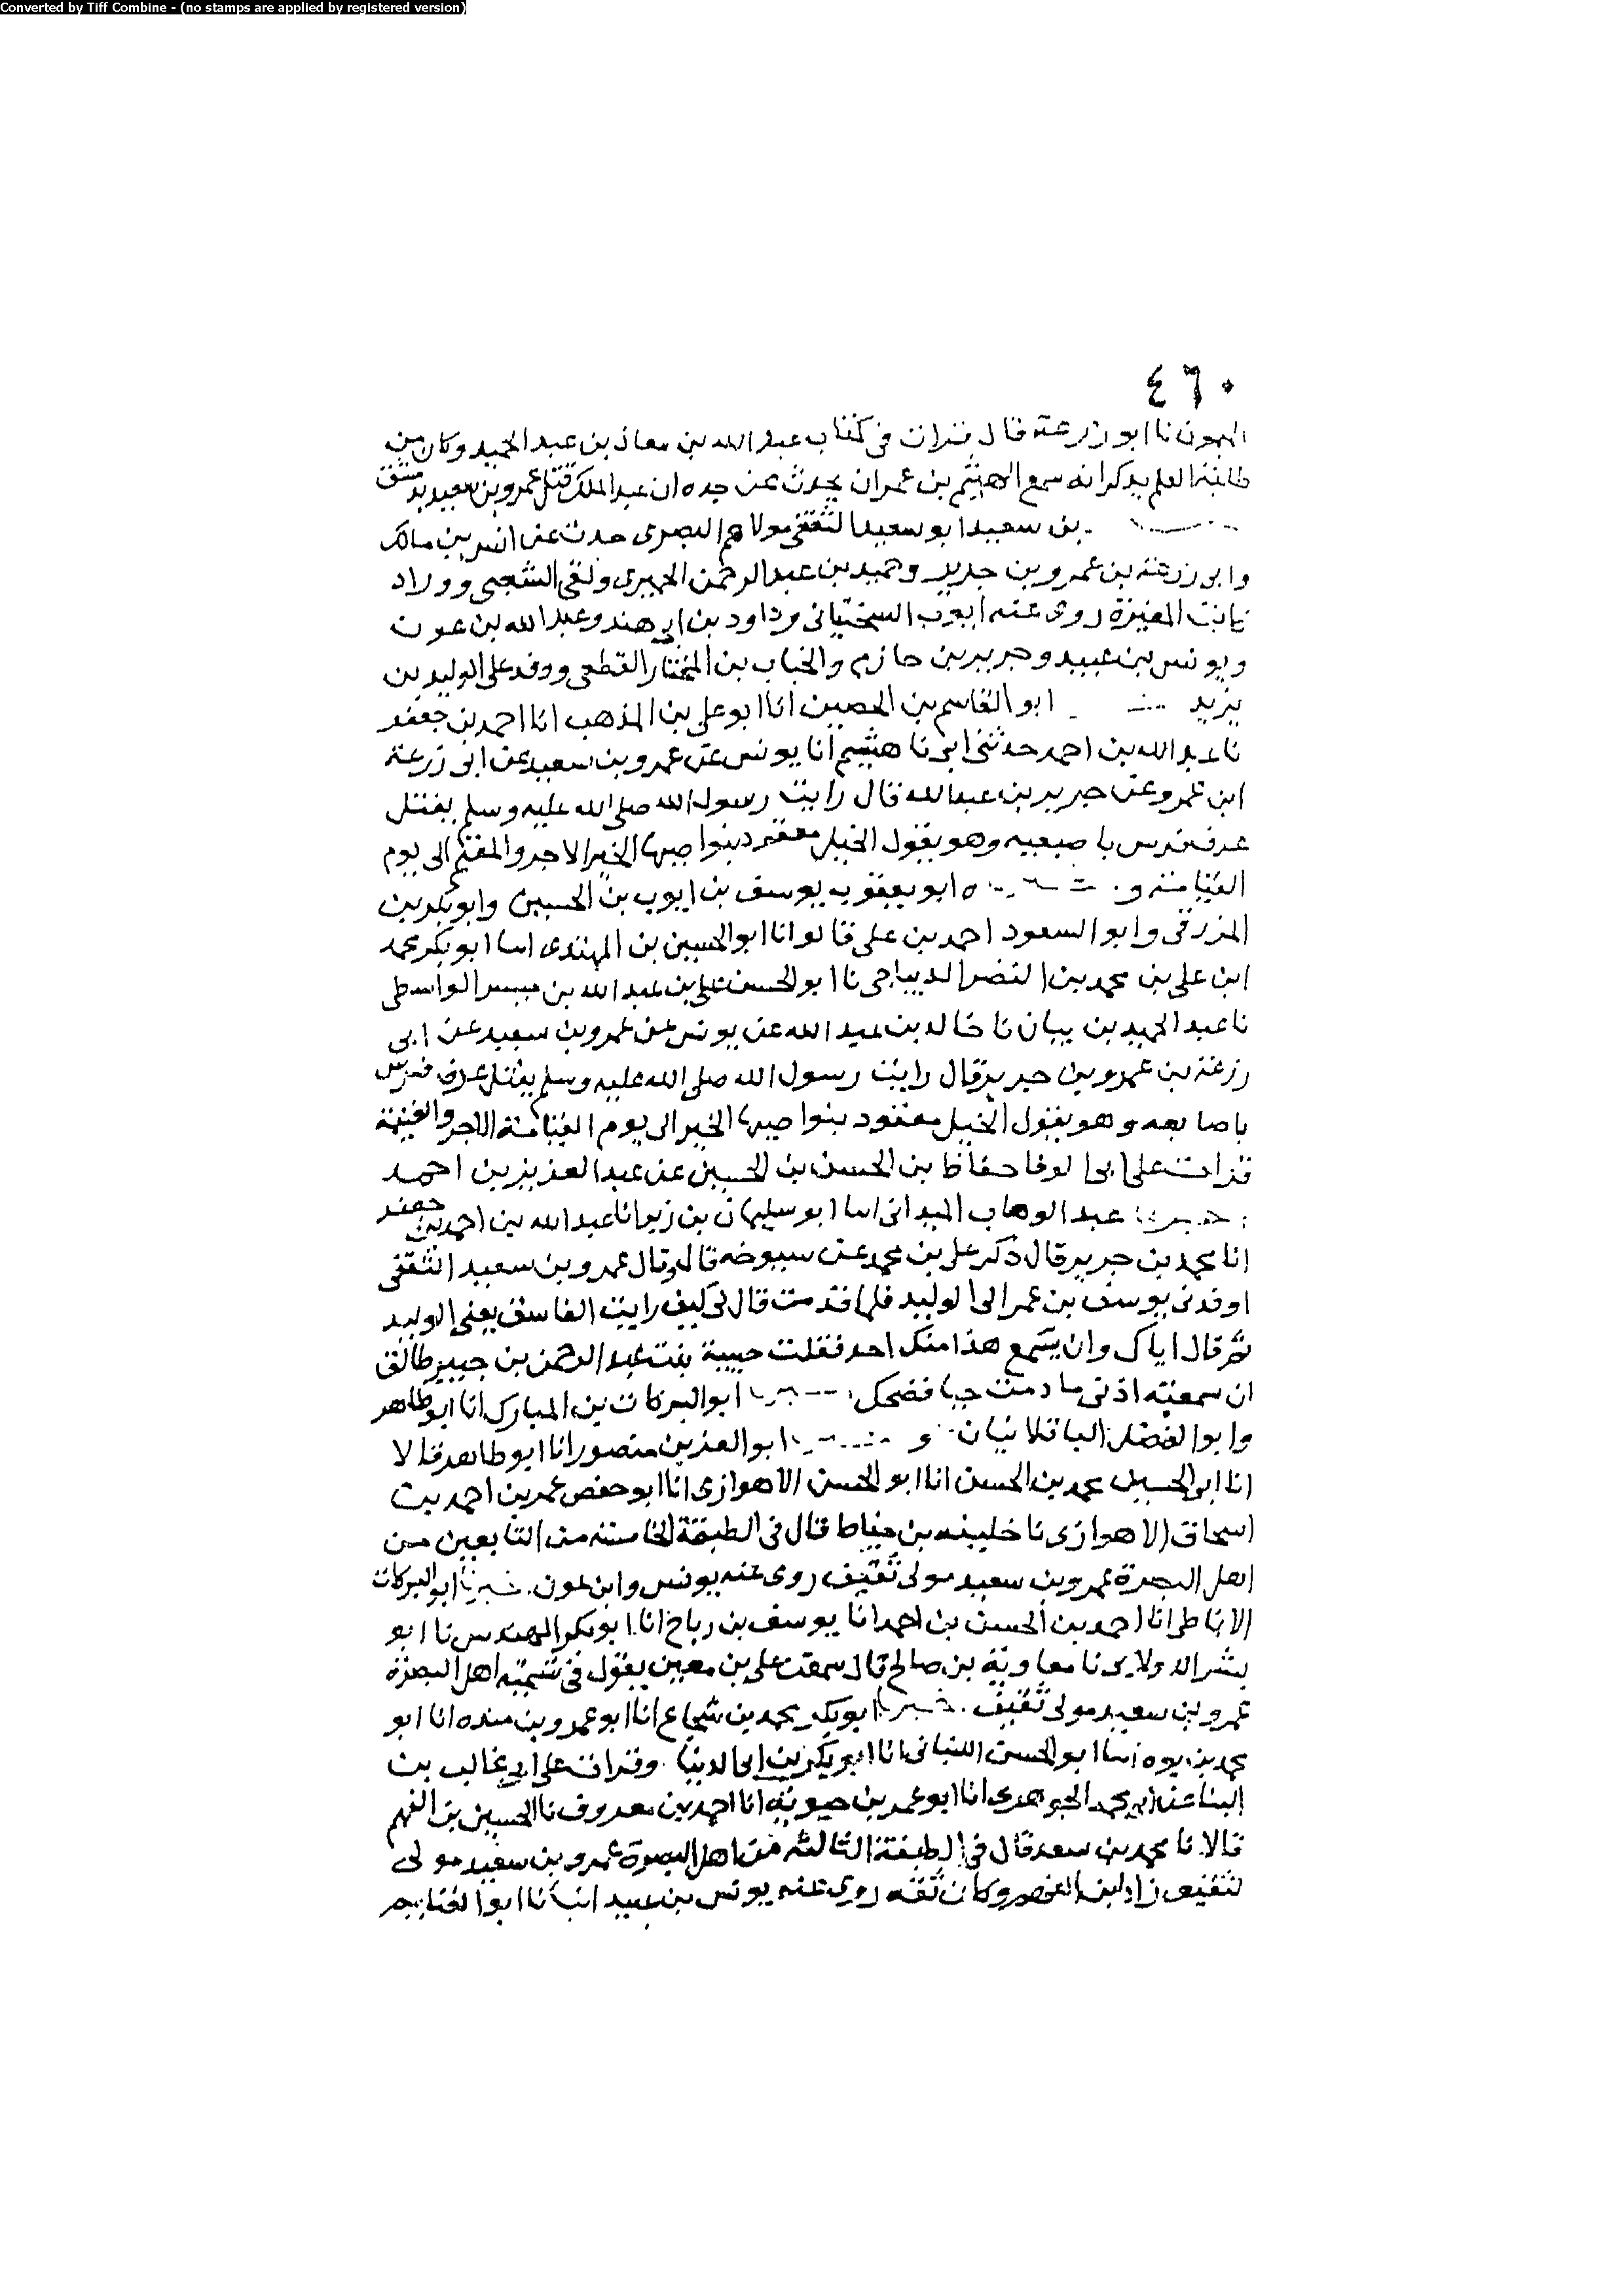 Converted by Tiff Combine - (no stamps are applied by registered version)
٤٦٠
الميمون نا ابو زرعة قال قرات فى كتاب عبد الله بن معاذ بن عبد الحميد وكان من
طلبة العلم يذكر انه سمع الهيثم بن عمران يحدث عن جده ان عبد الملك قتل عمرو بن سعيد بدمشق
بن سعيد ابو سعيد الثقفى مولاهم البصرى حدث عن انس بن مالك
وابى زرعة بن عمرو بن جرير وحميد بن عبد الرحمن الحميرى ولقى الشعبى ووراد
كاتب المغيرة روى عنه ايوب السختيانى وداود بن ابى هند وعبد الله بن عون
ويونس بن عبيد وجرير بن حازم والحباب بن المختار القطعى ووفد على الوليد بن
يزيد ابو القاسم بن الحصين انا ابو على بن المذهب انا احمد بن جعفر
نا عبد الله بن احمد حدثنى ابى نا هشيم انا يونس عن عمرو بن سعيد عن ابى زرعة
ابن عمرو عن جرير بن عبد الله قال رايت رسول الله صلى الله عليه وسلم يفتل
عرف فرس باصبعيه وهو يقول الخيل معقود بنواصيها الخير الاجر والمغنم الى يوم
القيامة و ابو يعقوب يوسف بن ايوب بن الحسين وابو بكر بن
المزرقى وابو السعود احمد بن على قالوا انا ابو الحسين بن المهتدى انا ابو بكر محمد
ابن على بن محمد بن النضر الديباجى نا ابو الحسن على بن عبد الله بن مبشر الواسطى
نا عبد الحميد بن بيان نا خالد بن عبد الله عن يونس عن عمرو بن سعيد عن ابى
زرعة بن عمرو بن جرير قال رايت رسول الله صلى الله عليه وسلم يفتل عرف فرس
باصابعه وهو يقول الخيل معقود بنواصيها الخير الى يوم القيامة الاجر والغنيمة
قرات على ابى الوفا حفاظ بن الحسن بن الحسين عن عبد العزيز بن احمد
عبد الوهاب الميدانى انا ابو سليمان بن زبر انا عبد الله بن احمد بن جعفر
انا محمد بن جرير قال ذكر على بن محمد عن شيوخه قال وقال عمرو بن سعيد الثقفى
اوفدنى يوسف بن عمر الى الوليد فلما قدمت قال لى كيف رايت الفاسق يعنى الوليد
ثم قال اياك وان يسمع هذا منك احد فقلت حبيبة بنت عبد الرحمن بن جبير طالق
ان سمعته اذنى ما دمت حيا فضحك ابو البركات بن المبارك انا ابو طاهر
وابو الفضل الباقلانيان و ابو العز بن منصور انا ابو طاهر قالا
انا ابو الحسين محمد بن الحسن انا ابو الحسن الاهوازى انا ابو حفص عمر بن احمد بن
اسحاق الاهوازى نا خليفه بن خياط قال فى الطبقة الخامسة من التابعين من
اهل البصرة عمرو بن سعيد مولى ثقيف روى عنه يونس وابن عون. خبرنا ابو البركات
الانماطى انا احمد بن الحسن بن احمد انا يوسف بن رباح انا ابو بكر المهندس نا ابو
بشر الدولابى نا معاوية بن صالح قال سمعت على بن معين يقول فى تسمية اهل البصرة
عمرو بن سعيد مولى ثقيف. خبرنا ابو بكر محمد بن شجاع انا ابو عمرو بن منده انا ابو
محمد بن يوه انا ابو الحسن اللنبانى انا ابو بكر بن ابى الدنيا. وقرات على ابى غالب بن
البنا عن ابى محمد الجوهرى انا ابو عمر بن حيويه انا احمد بن معروف نا الحسين بن الفهم
قالا نا محمد بن سعد قال فى الطبقة الثالثه من اهل البصرة عمرو بن سعيد مولى
لثقيف زاد ابن الفهم وكان ثقه روى عنه يونس بن عبيد انبأنا ابوا لغنايم